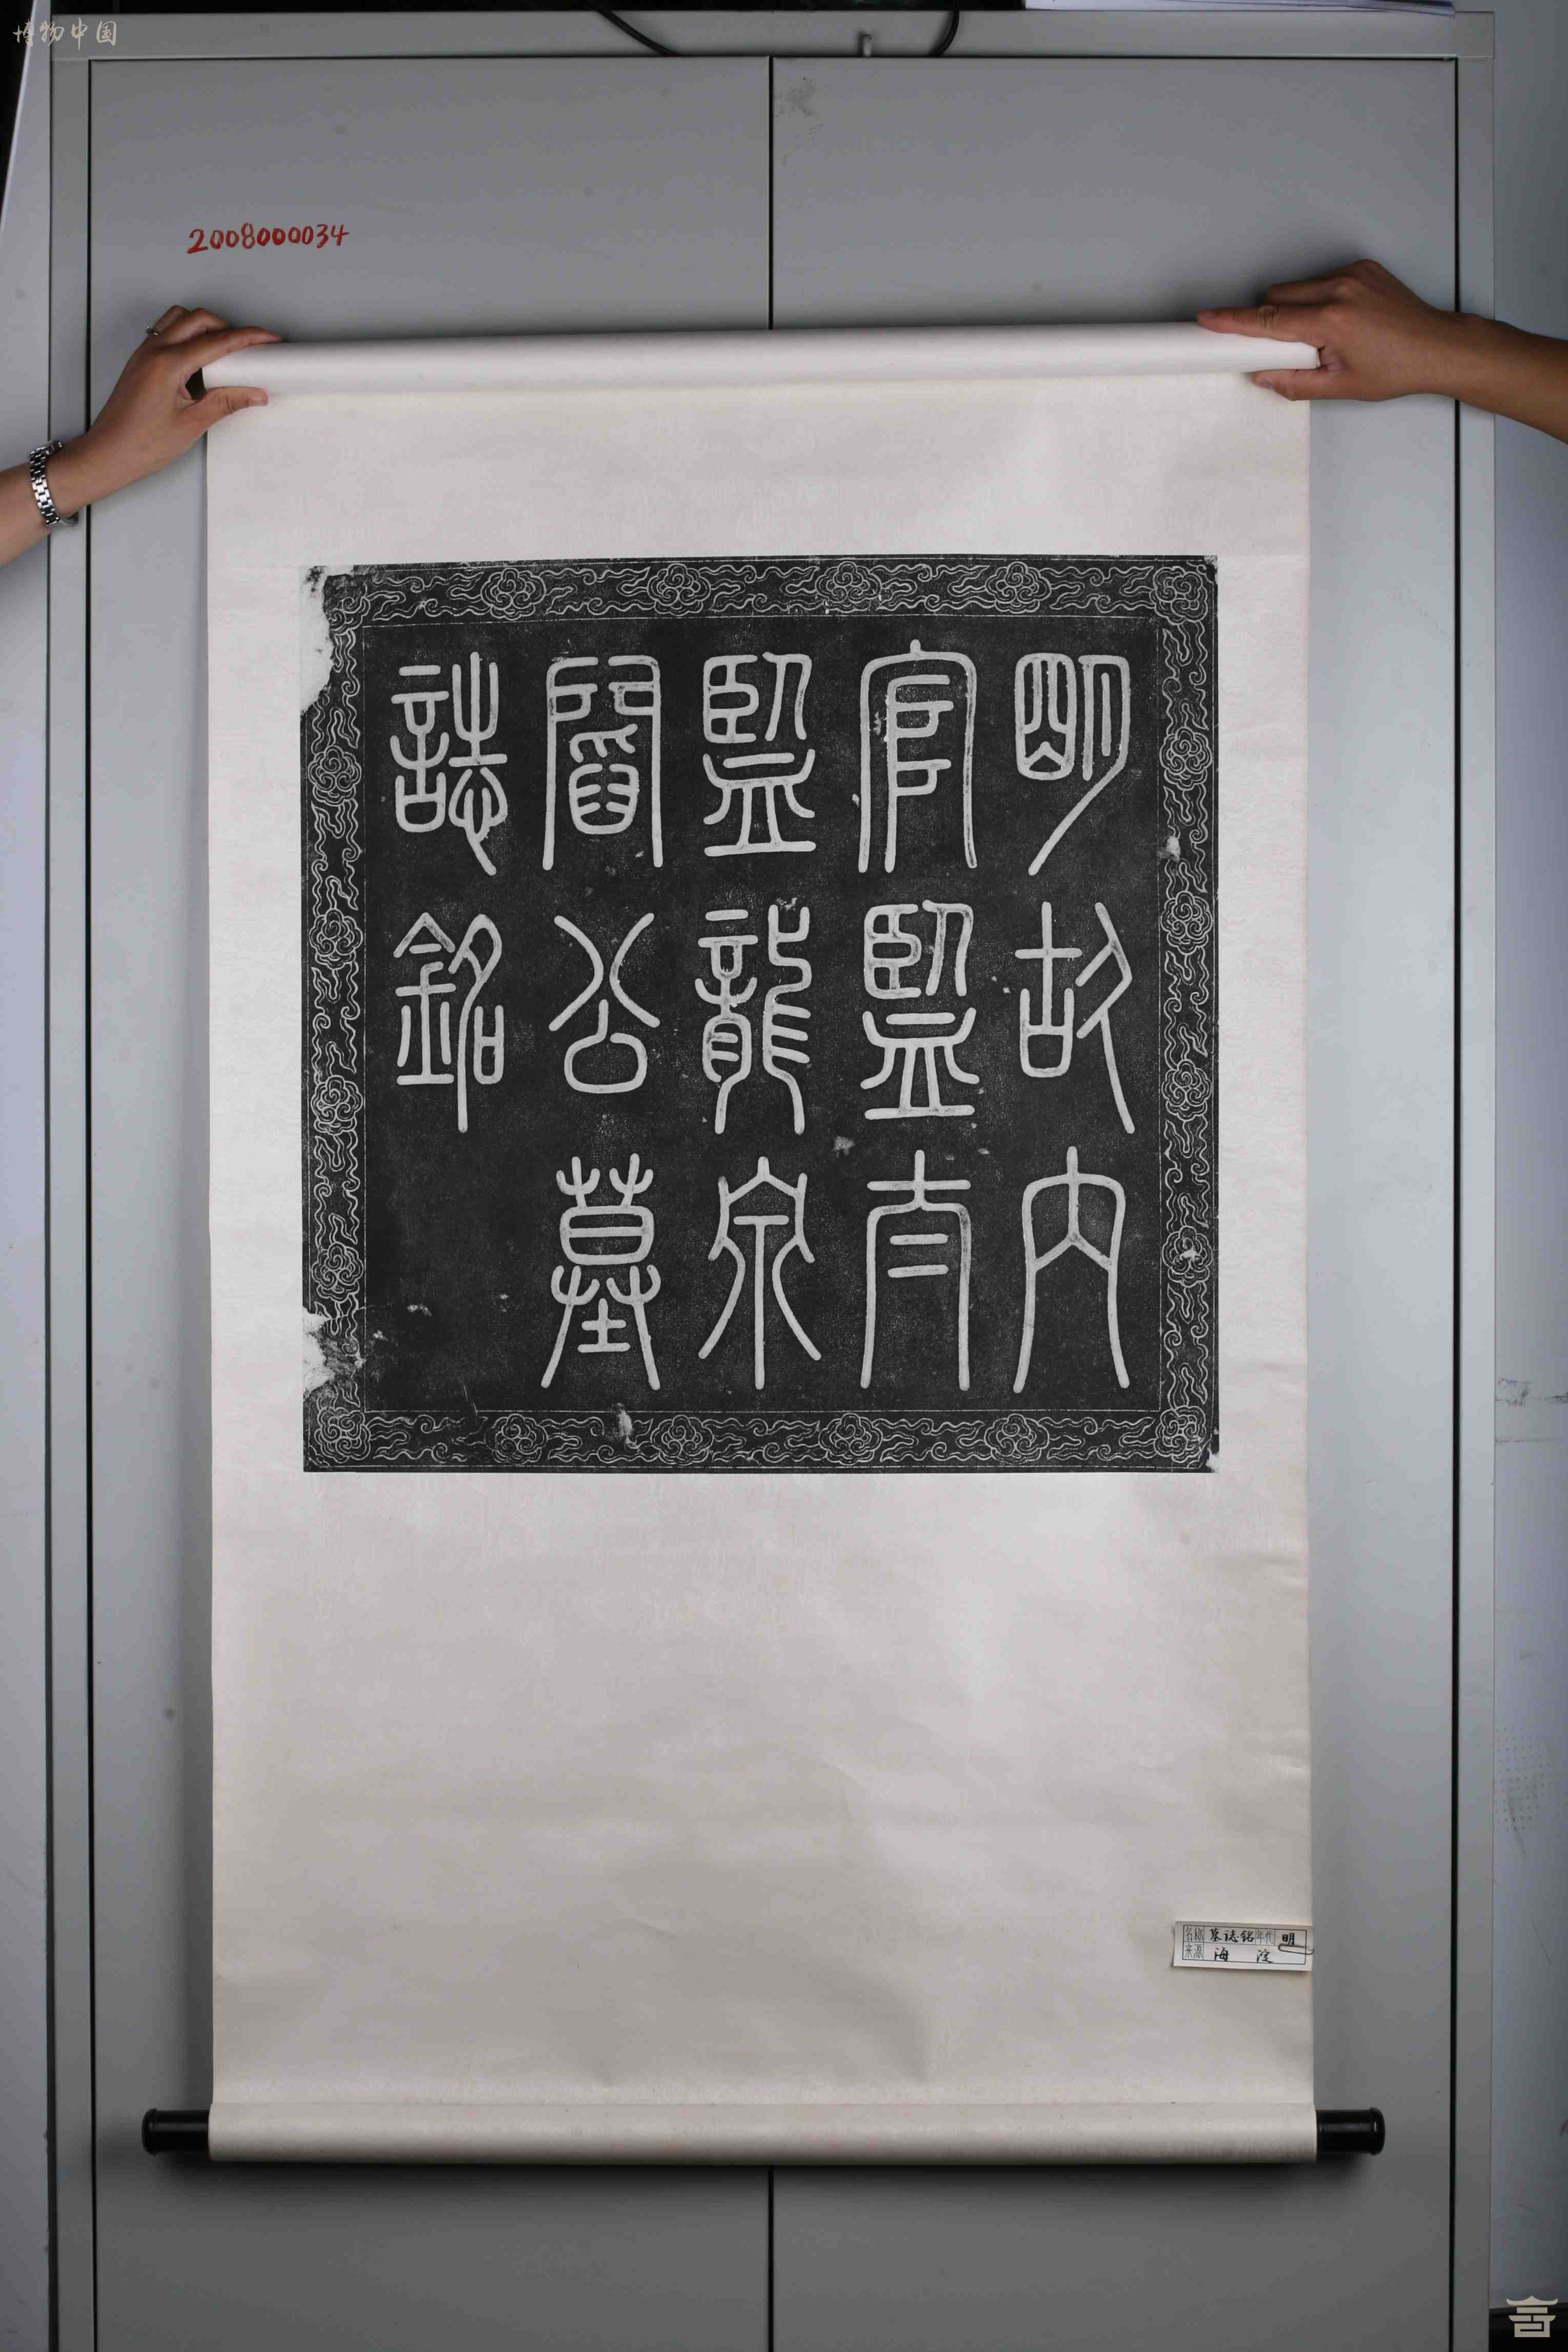 博物中国
2008000034
明故内
官監太
監龍泉
閻公墓
誌銘
名称 墓誌銘 年代 明
来源 海淀